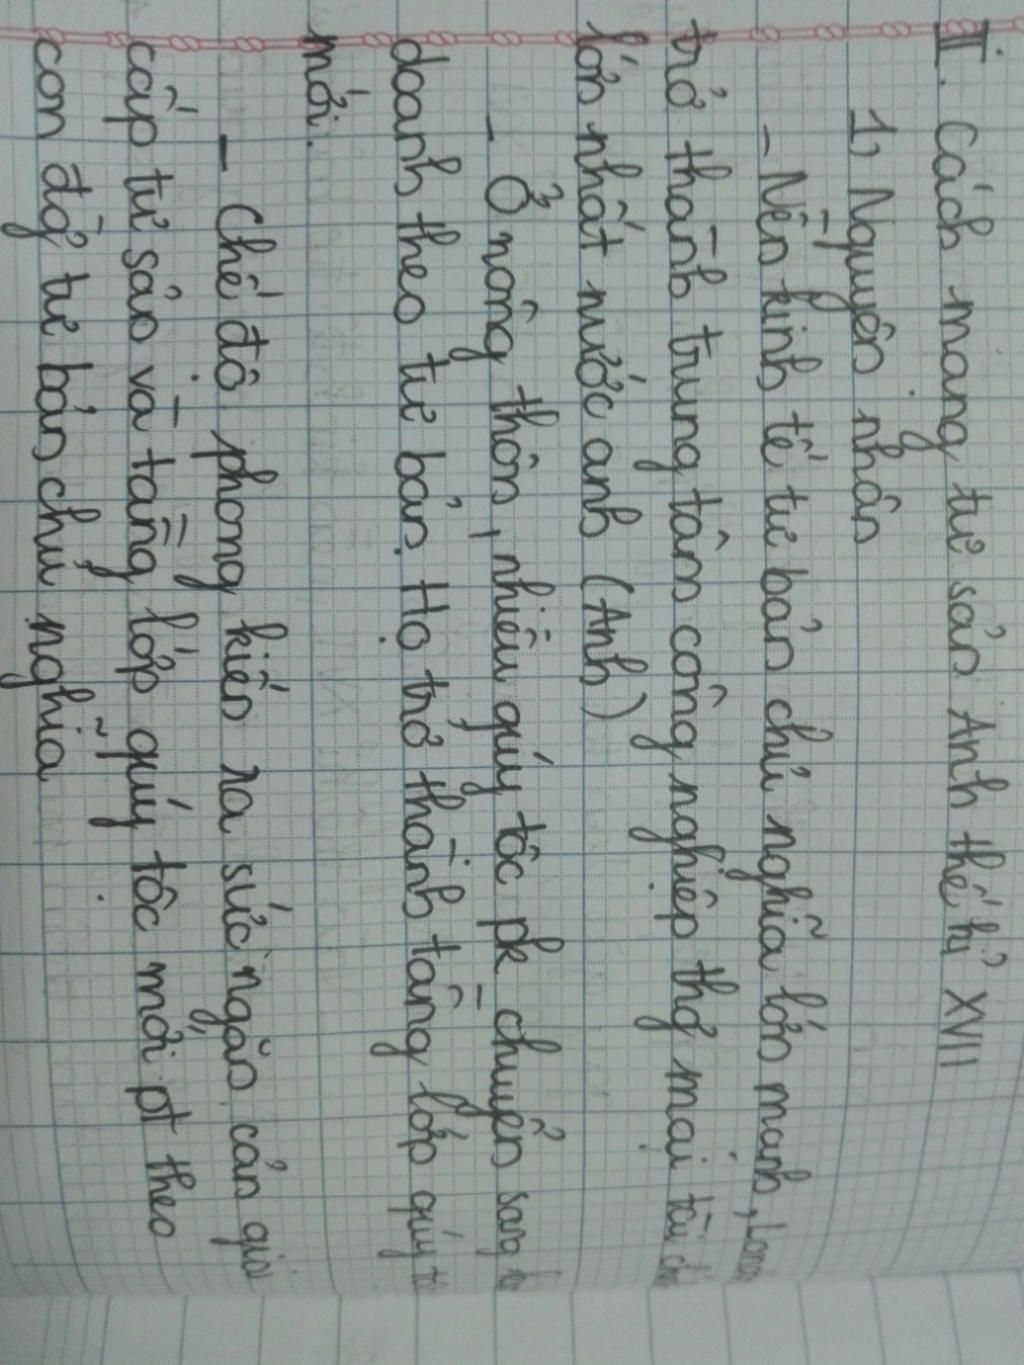 II. Cách mạng tư sản Anh thế kỉ XVII
1, Nguyên nhân
- Nền kinh tế tư bản chủ nghĩa lớn mạnh,
trở thành trung tâm công nghiệp thg mại tài
lớn nhất nước anh (Anh)
- Ở nông thôn, nhiều quý tộc pk chuyển sang
doanh theo tư bản. Họ trở thành tầng lớp quý
mới.
- Chế độ phong kiến ra sức ngăn cản giai
cấp tư sản và tầng lớp quý tộc mới pt theo
con đg tư bản chủ nghĩa